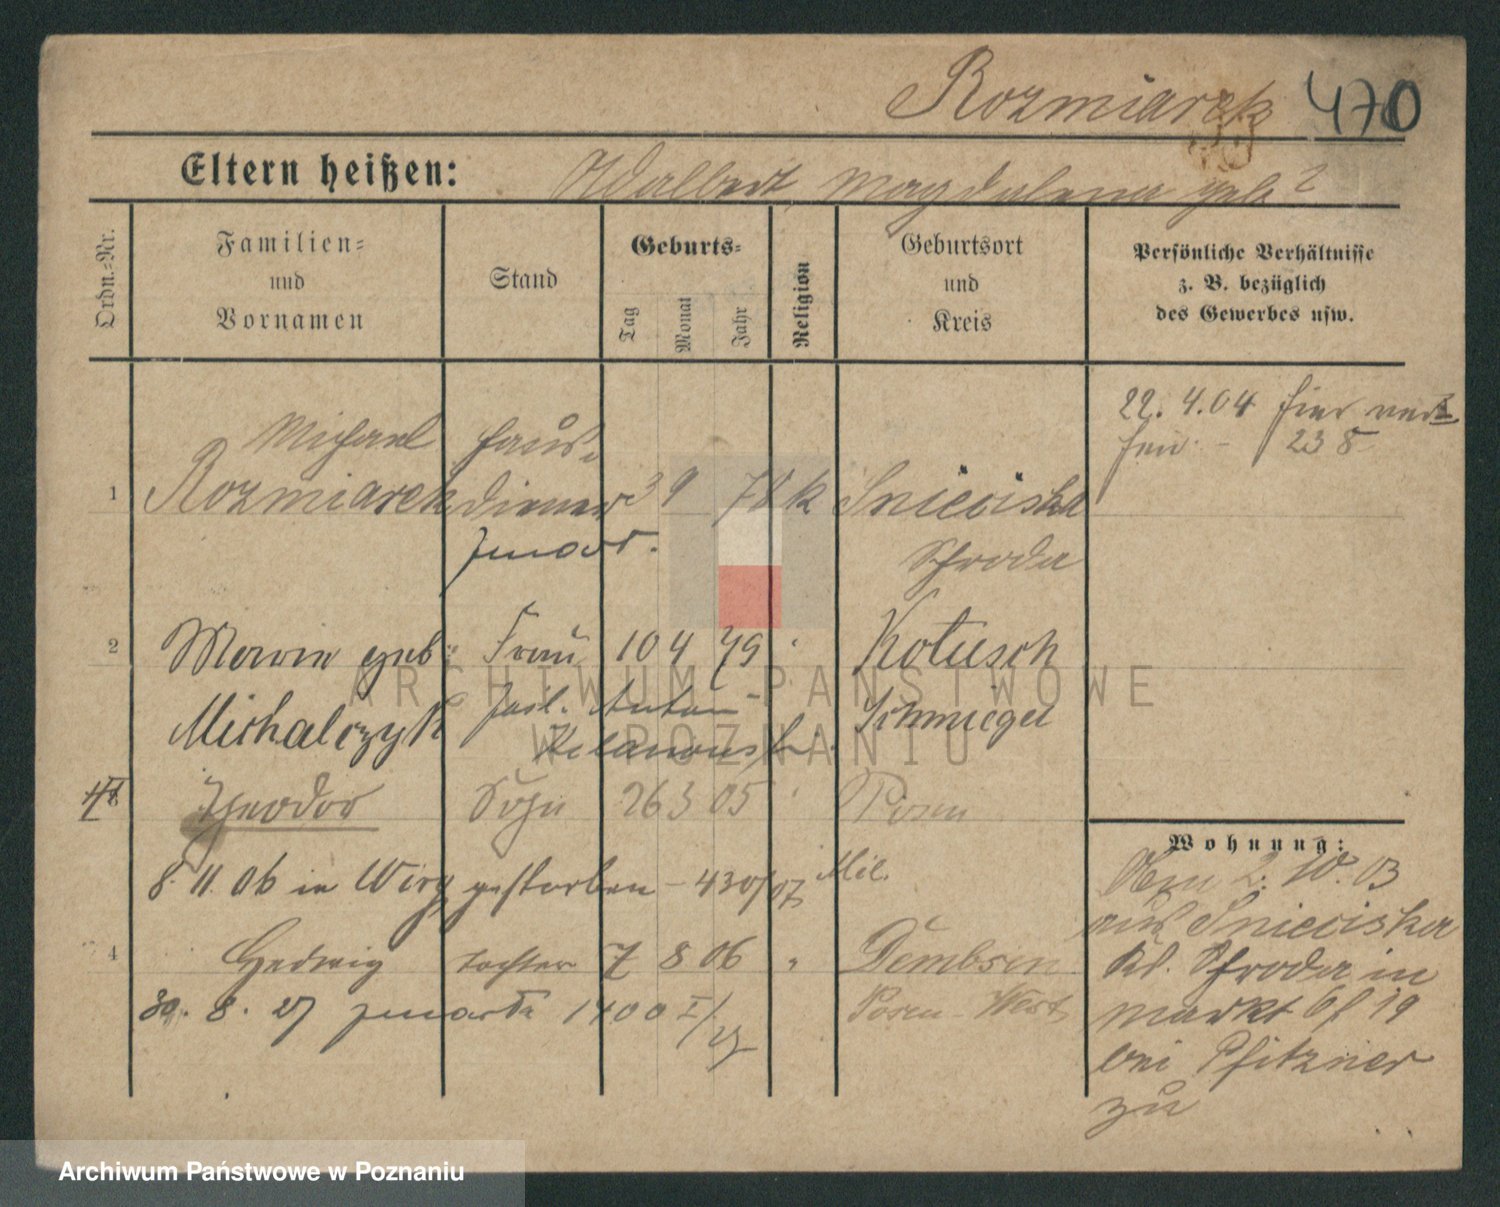 Rozmiarek 470
Eltern heißen: Adalbert, Magdalena geb ?
Ordn.-Nr.
Familien-
und
Vornamen
Stand
Geburts-
Tag
Monat
Jahr
Religion
Geburtsort
und
Kreis
Persönliche Verhältnisse
z. B. bezüglich
des Gewerbes usw.
22. 4. 04 hier
238
Michael Haus-
1 Rozmiarek diener 3 9 78 k Snieciska
zmarł. Schroda
2 Marie geb: Frau 10 4 79 " Kotusch
Michalczyk Anton Schmiegel
3 Theodor Sohn 26 3 05 " Posen
8. 11. 06 in gestorben - 430/07 Mil.
4 Hedwig tochter 7 8 06 " Dembsen
30. 8. 27 zmarła 1400 I/27 Posen - West
Wohnung:
2. 10. 03
aus Snieciska
Kr. Schroda in
markt 6/ 19
bei Pfitzner
zu
ARCHIWUM PAŃSTWOWE
W POZNANIU
Archiwum Państwowe w Poznaniu